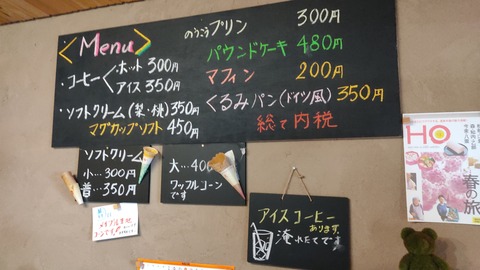 Menu
・コーヒー
ホット 300円
アイス 350円
・ソフトクリーム (梨・桃) 350円
マグカップソフト 450円
のうこうプリン 300円
パウンドケーキ 480円
マフィン 200円
くるみパン(ドイツ風) 350円
総て内税
ソフトクリーム
小…300円
普…350円
大…400
ワッフルコーン
です
アイスコーヒー
あります。
淹れたてです
HO
春の旅